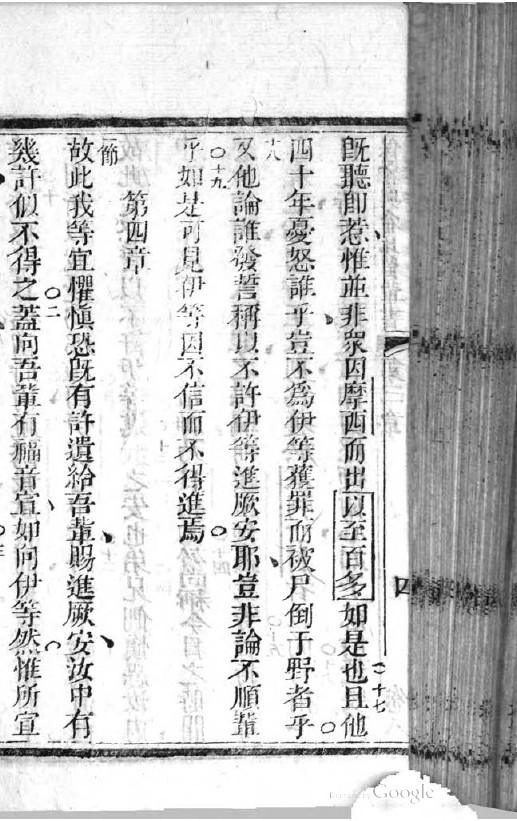 既聽卽惹惟並非眾因摩西而出以至百多如是也且他○十七
四十年憂怒誰乎豈不為伊等獲罪而被尸倒于野者乎○十八
又他論誰發誓稱以不許伊等進厥安耶豈非論不順輩○十九
乎如是可見伊等因不信而不得進焉
第四章
一節
故此我等宜懼愼恐既有許遺給吾輩賜進厥安汝中有
幾許似不得之○二蓋向吾輩有福音宣如向伊等然惟所宣
四
Google